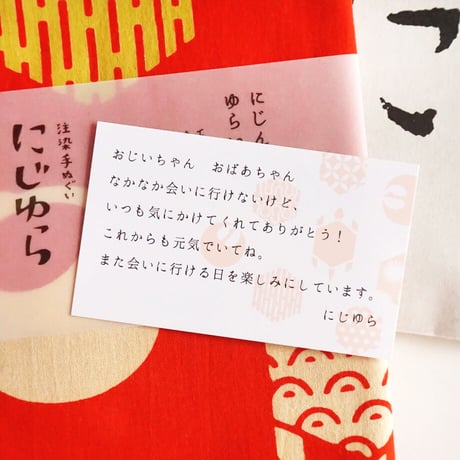 注染手ぬぐい
にじゆら
にじん
ゆら
おじいちゃん　おばあちゃん
なかなか会いに行けないけど、
いつも気にかけてくれてありがとう！
これからも元気でいてね。
また会いに行ける日を楽しみにしています。
にじゆら